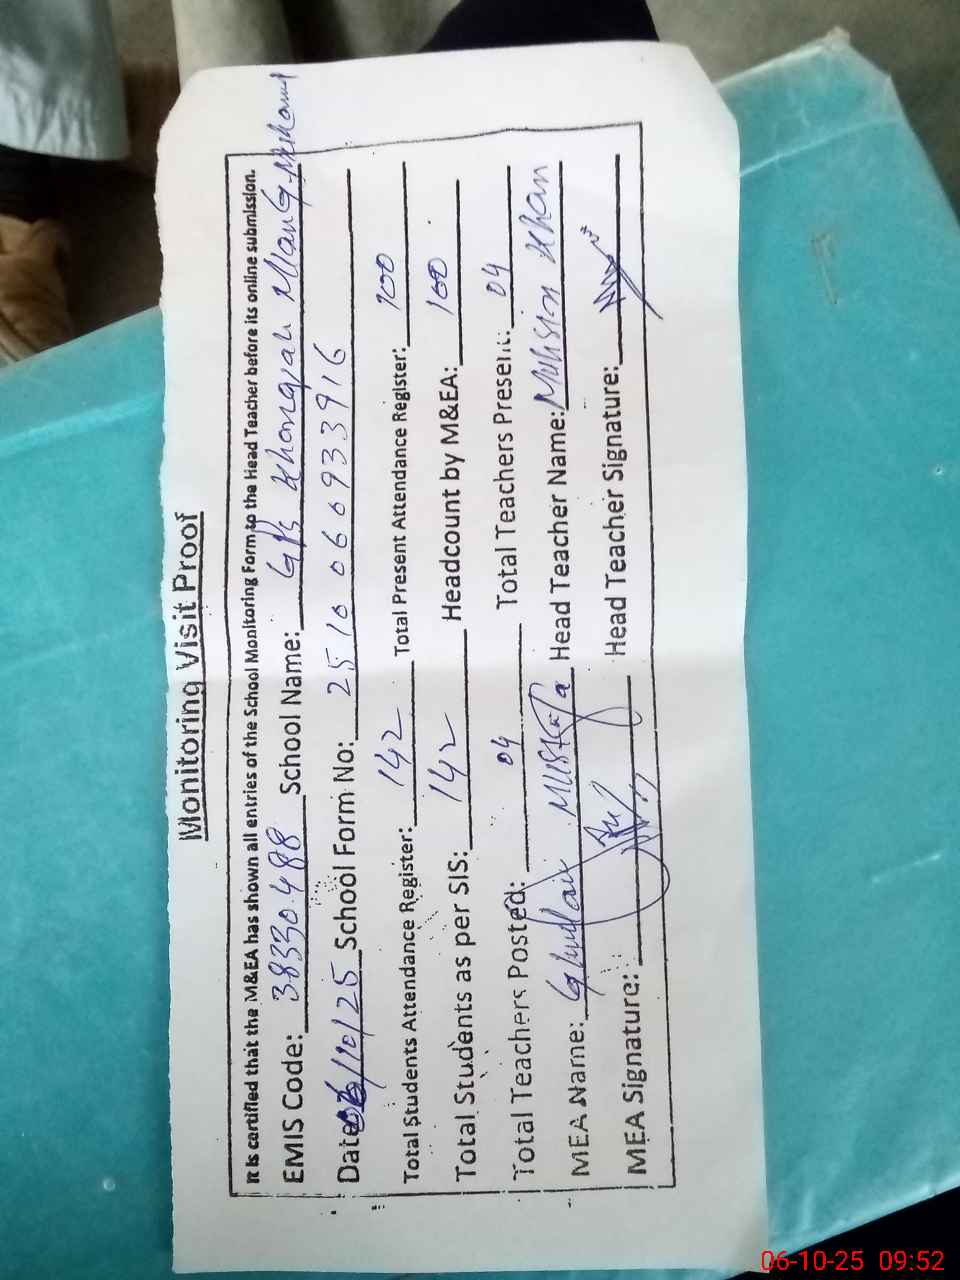 Monitoring Visit Proof
It is certified that the M&EA has shown all entries of the School Monitoring Form to the Head Teacher before its online submission.
EMIS Code: 38330488 School Name: GPS Khangjah
Date: 06/10/25 School Form No: 2510060933916
Total Students Attendance Register: 142 Total Present Attendance Register: 100
Total Students as per SIS: 142 Headcount by M&EA: 100
Total Teachers Posted: 04 Total Teachers Present: 04
MEA Name: Ghulam Mustafa Head Teacher Name: Muhsin Khan
MEA Signature: Head Teacher Signature:
06-10-25 09:52